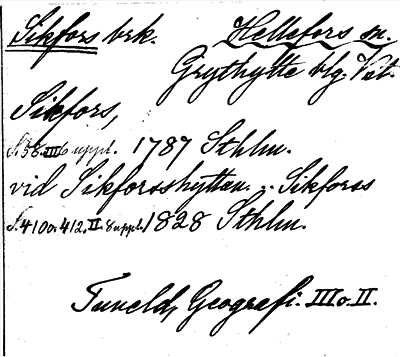 Sikfors brk. Hellefors sn.
Grythytte blg. Vst.
Sikfors,
S. 58. III 6 uppl. 1787 Sthlm.
vid Sikforsshyttan. Sikforss
S. 410 o. 412. II. 8 uppl. 1828 Sthlm.
Tuneld, Geografi. III o. II.